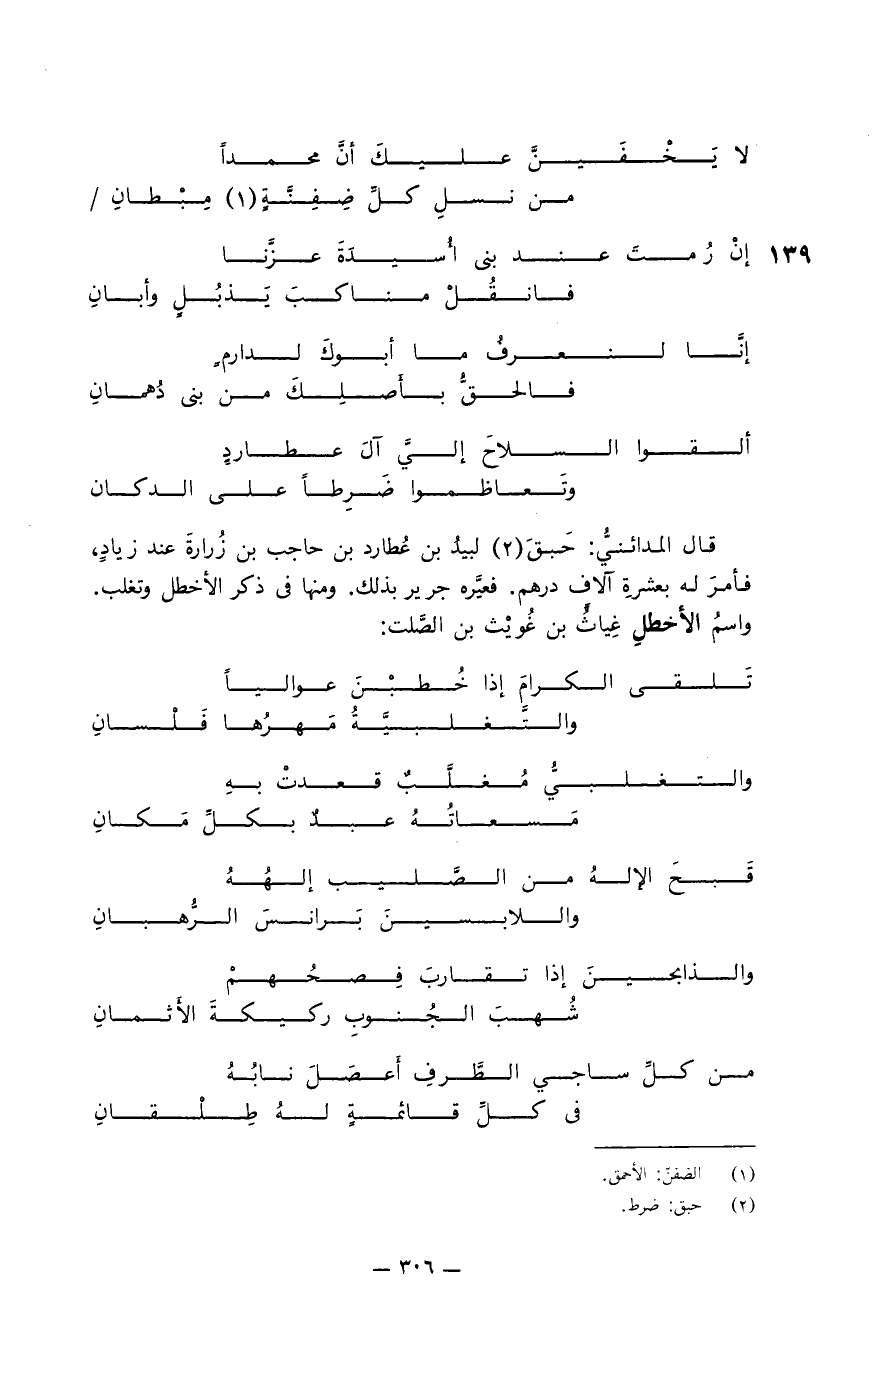 لا يَخْفَيَنَّ عليكَ أنَّ محمداً
من نسلِ كلِّ ضِفِنَّةٍ(١) مِبْطانِ /
١٣٩ إنْ رُمتَ عند بنى أُسيدَةَ عزَّنا
فانقُلْ مناكبَ يَذبُلٍ وأبانِ
إنَّا لنعرفُ ما أبوكَ لدارمٍ
فالحقُّ بأصلِكَ من بنى دُهمانِ
ألقوا السلاحَ إليَّ آلَ عطاردٍ
وتَعاظموا ضَرِطاً على الدكان
قال المدائنيُّ: حَبقَ(٢) لبيدُ بن عُطارد بن حاجب بن زُرارةَ عند زيادٍ،
فأمرَ له بعشرةِ آلافِ درهم. فعيَّره جرير بذلك. ومنها فى ذكر الأخطل وتغلب.
واسمُ الأخطلِ غِياثُ بن غُويْث بن الصَّلت:
تَلقى الكرامَ إذا خُطبْنَ عوالياً
والتَّغلبيَّةُ مَهرُها فَلْسانِ
والتغلبيُّ مُغلَّبٌ قعدتْ بهِ
مَسعاتُهُ عبدٌ بكلِّ مَكانِ
قَبحَ الإلهُ من الصَّليبِ إلهُهُ
واللابسينَ بَرانسَ الرُّهبانِ
والذابحينَ إذا تقاربَ فِصحُهمْ
شُهبَ الجُنوبِ ركيكةَ الأثمانِ
من كلِّ ساجي الطَّرفِ أَعصَلَ نابُهُ
فى كلِّ قائمةٍ لهُ طِلْقانِ
(١) الضفنّ: الأحمق.
(٢) حبق: ضرط.
— ٣٠٦ —